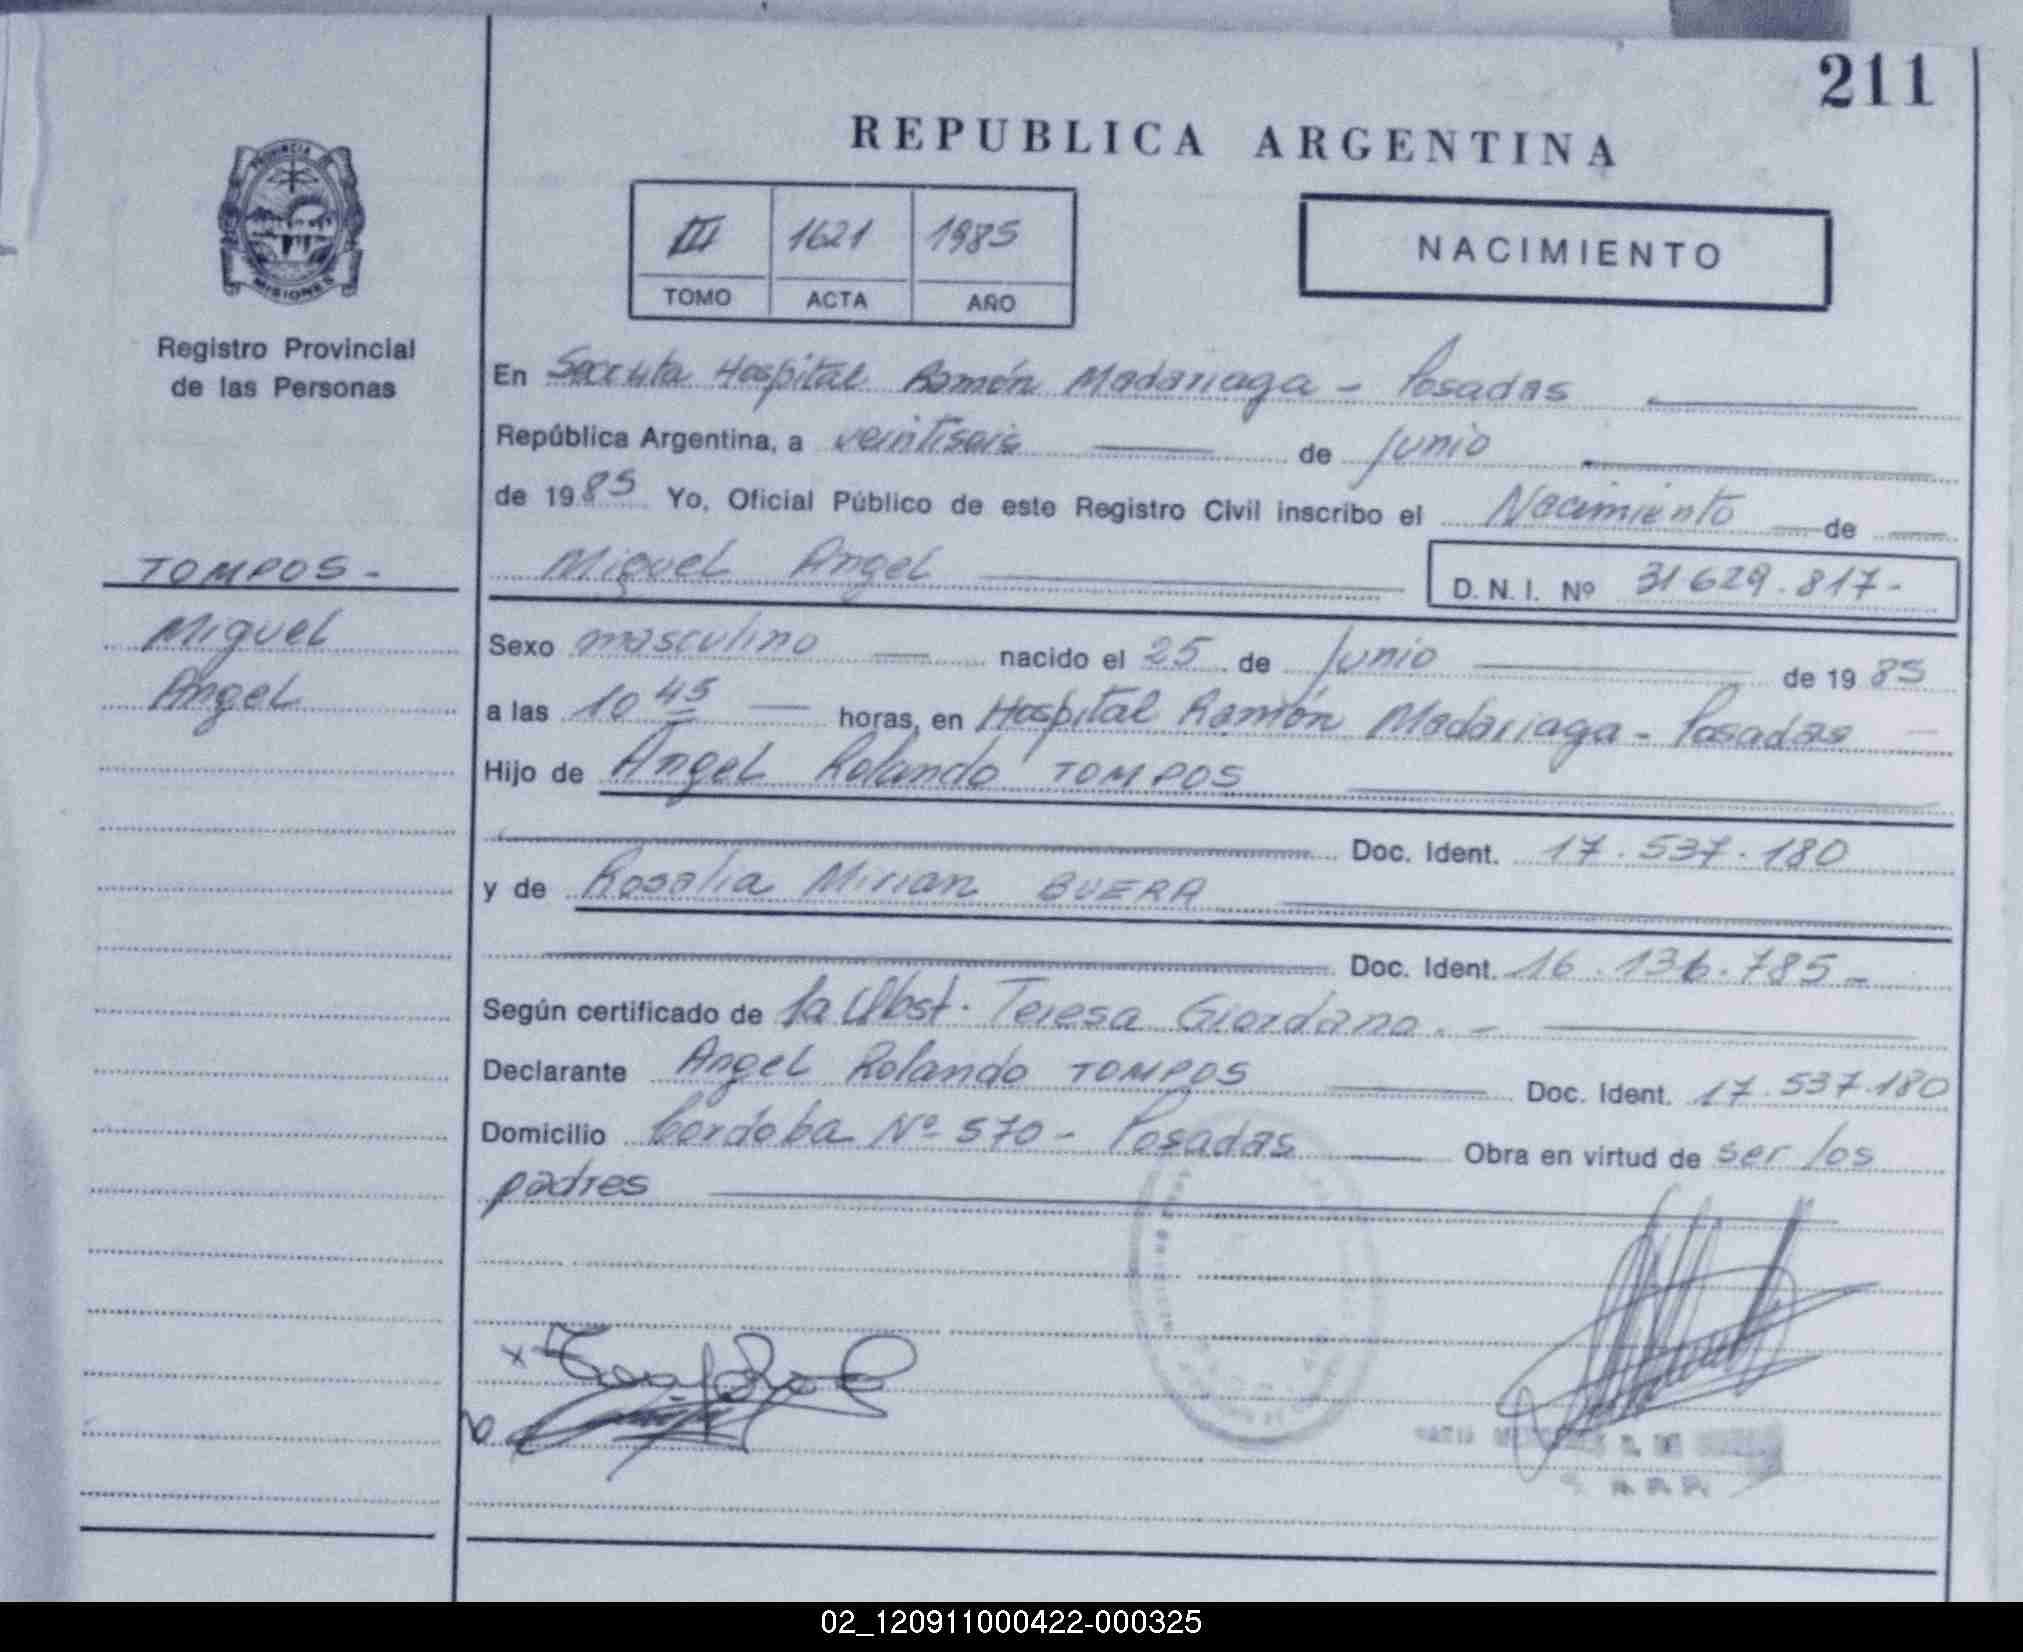 211
REPUBLICA ARGENTINA
PROVINCIA DE
MISIONES
III 1621 1985
TOMO ACTA AÑO
NACIMIENTO
Registro Provincial
de las Personas
En Hospital Ramón Madariaga - Posadas
República Argentina, a veintiseis de junio
de 1985 Yo, Oficial Público de este Registro Civil inscribo el Nacimiento de
Miguel Angel D.N.I. Nº 31.629.817-
TOMPOS -
Miguel
Angel
Sexo masculino nacido el 25 de junio de 1985
a las 10 45 horas, en Hospital Ramón Madariaga - Posadas
Hijo de Angel Rolando TOMPOS
Doc. Ident. 17.537.180
y de Rosalia Mirian BUERA
Doc. Ident. 16.136.785-
Según certificado de la Obst. Teresa Giordano. -
Declarante Angel Rolando TOMPOS Doc. Ident. 17.537.180
Domicilio Cordoba Nº 570 - Posadas Obra en virtud de ser los
padres
02_120911000422-000325